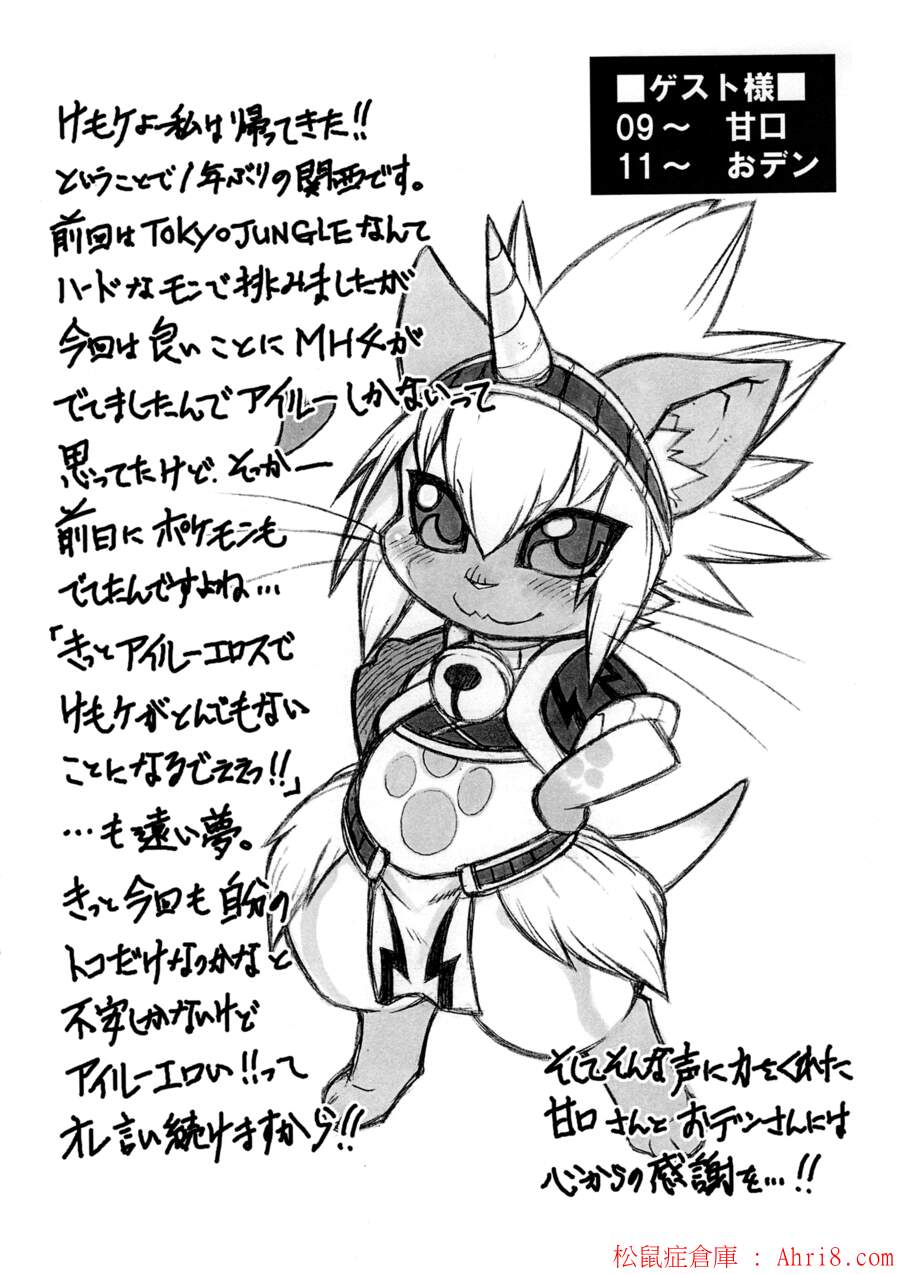 ■ゲスト様■
09～ 甘口
11～ おデン
けもケよー私は帰ってきた!!
ということで1年ぶりの関西です。
前回はTOKYOJUNGLEなんて
ハードなモンで挑みましたが
今回は良いことにMH4が
でてましたんでアイルーしかないって
思ってたけど、そっかー
前日にポケモンも
でてたんですよね…
「きっとアイルーエロスで
けもケがとんでもない
ことになるでええっ!!」
…も遠い夢。
きっと今回も自分の
トコだけなのかなと
不安しかないけど
アイルーエロい!!って
オレ言い続けますから!!
そしてそんな声に力をくれた
甘口さんとおデンさんには
心からの感謝を…!!
松鼠症倉庫 : Ahri8.com